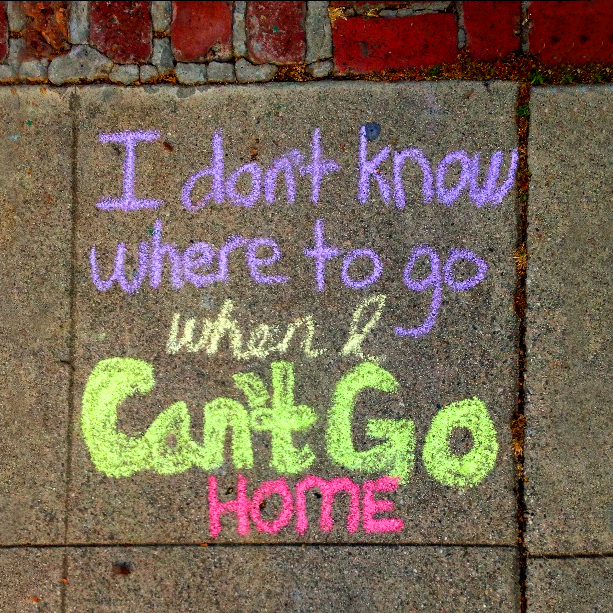 I don't know
where to go
when I
Can't Go
HOME